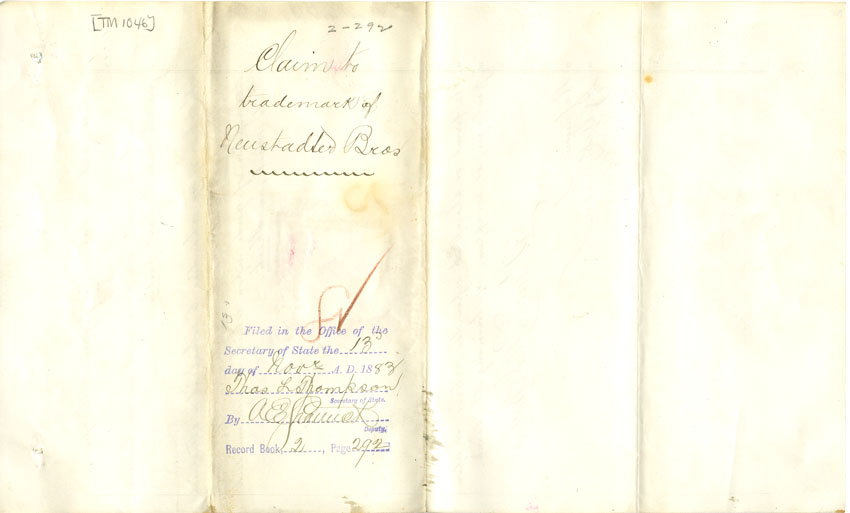 [TM 1046]
2-292
Claim to
trademark of
Neustadter Bros
Filed in the Office of the
Secretary of State the 13
day of Novr A. D. 1883
Thos L Thompson
Secretary of State.
By A E
Deputy.
Record Book, 2, Page 292